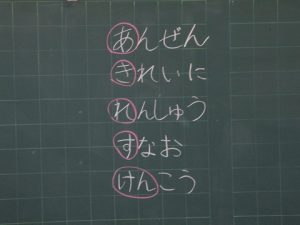 あんぜん
きれいに
れんしゅう
すなお
けんこう